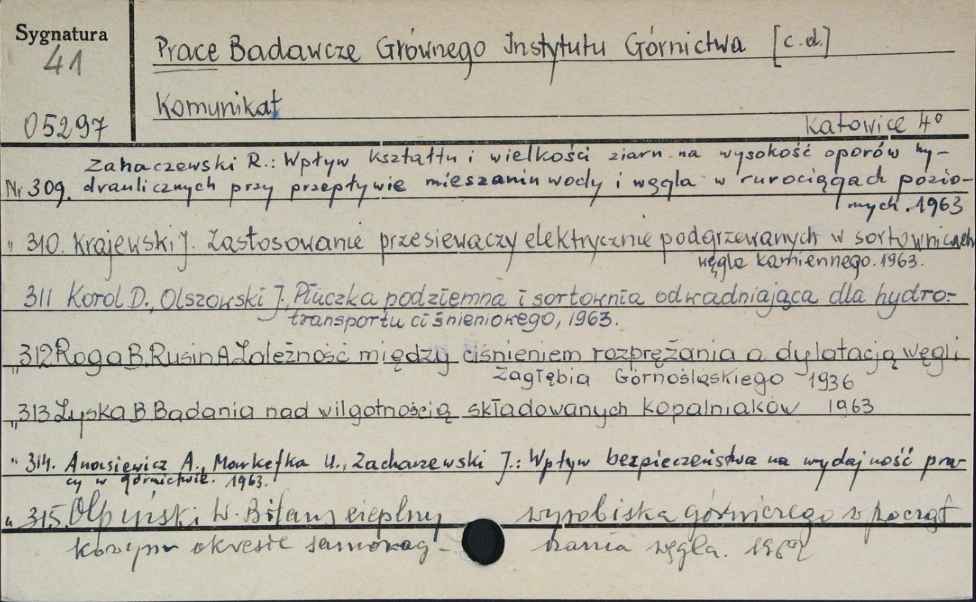 Sygnatura
41
05297
Prace Badawcze Głównego Instytutu Górnictwa [c.d.]
Komunikat
Katowice 4°
Zahaczewski R.: Wpływ kształtu i wielkości ziarn na wysokość oporów hy-
Nr 309. draulicznych przy przepływie mieszanin wody i węgla w rurociągach pozio-
mych. 1963
" 310. Krajewski J. Zastosowanie przesiewaczy elektrycznie podgrzewanych w sortowniach
węgla kamiennego. 1963.
311 Korol D., Olszowski J. Płuczka podziemna i sortownia odwadniająca dla hydro-
transportu ciśnieniowego, 1963.
"312 Roga B. Rusin A. Zależność między ciśnieniem rozprężania a dylatacją węgli
Zagłębia Górnośląskiego 1936
"313 Łyska B Badania nad wilgotnością składowanych kopalniaków 1963
" 314. Anasiewicz A., Markefka U., Zacharzewski J.: Wpływ bezpieczeństwa na wydajność pra-
cy w górnictwie. 1963.
" 315. Olpiński W. Bilans cieplny wyrobiska górniczego w począt
kowym okresie samozag- rzania węgla.